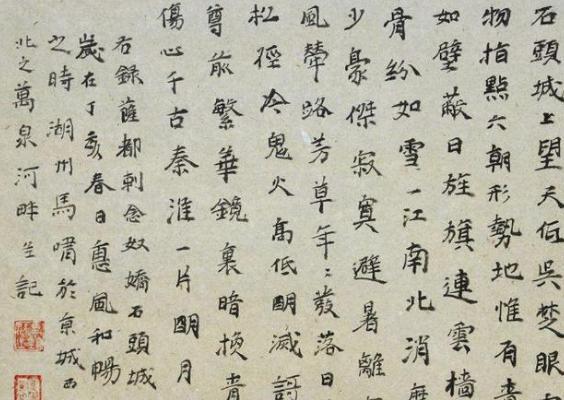 石頭城上望天低吳楚眼
物指點六朝形勢地惟有
如壁蔽日旌旗連雲檣
骨紛如雪一江南北消
少豪傑寂寞避暑離
風輦路芳草年々發落日
松徑冷鬼火高低明滅謌
尊前繁華鏡裏暗換青
傷心千古秦淮一片明月
右錄薩都剌念奴嬌石頭城
歲在丁亥春日惠風和暢
之時湖州馬嘯於京城西
北之萬泉河畔並記